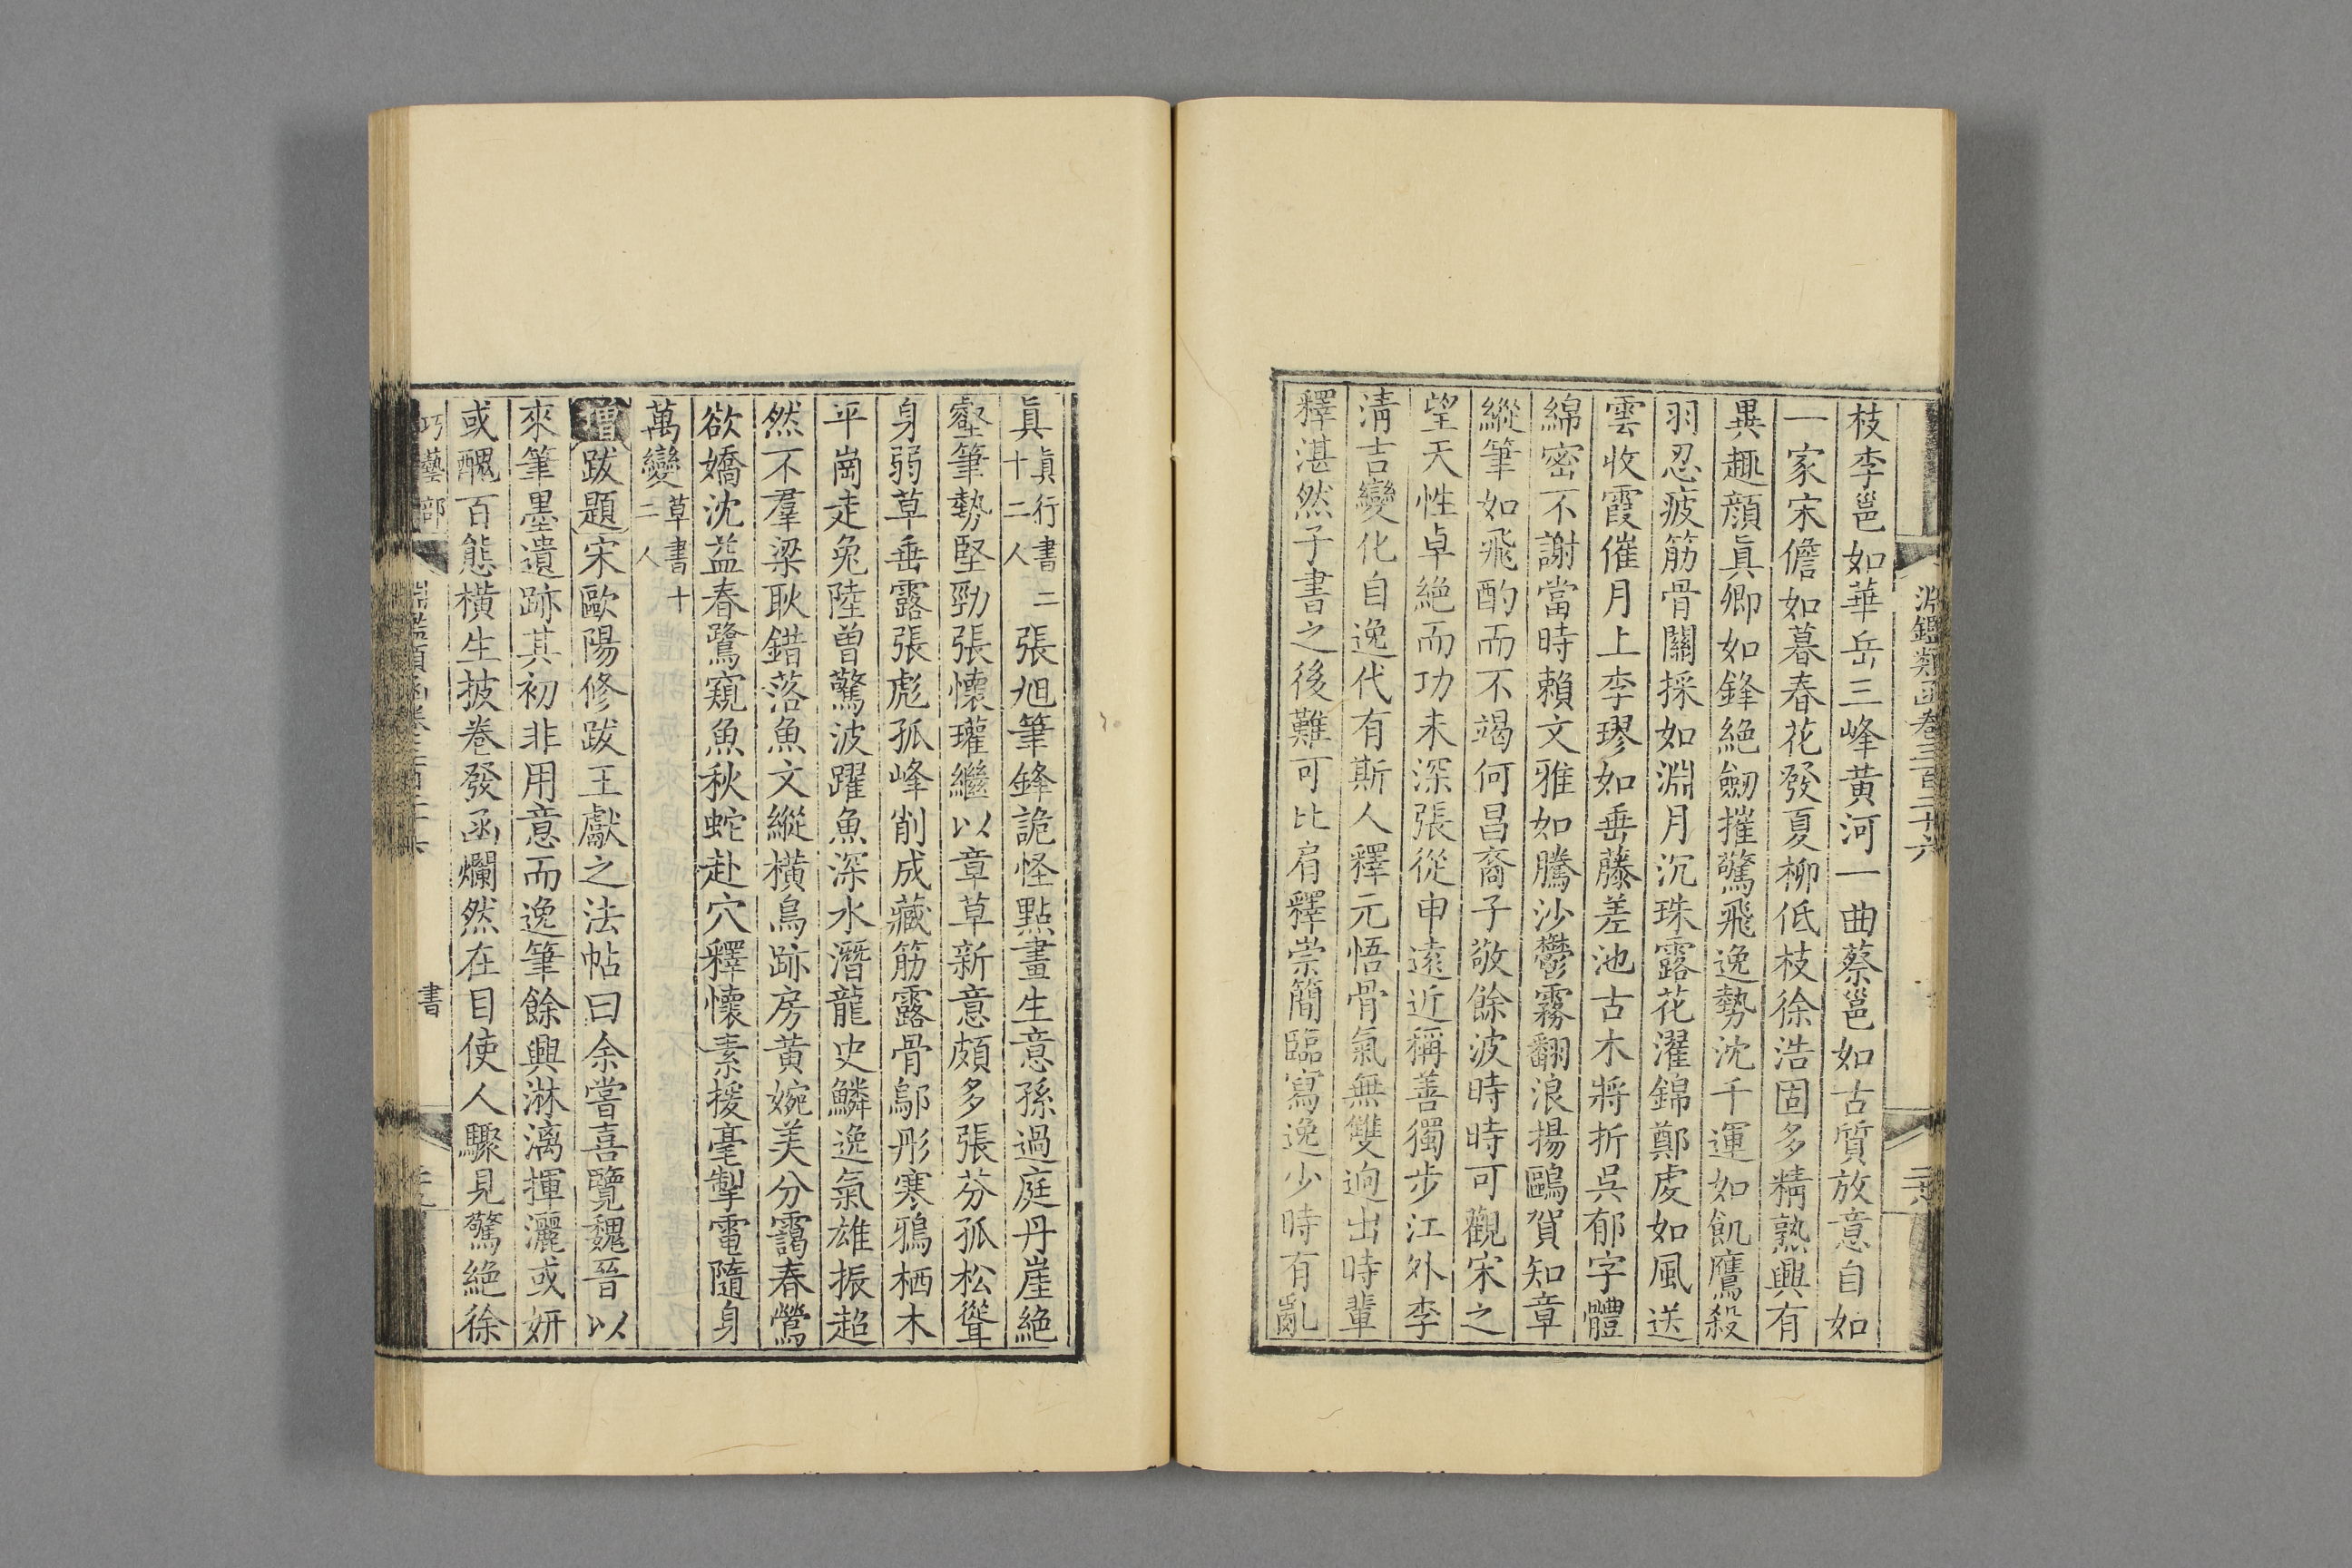 淵鑑類函卷三百二十六
枝李邕如華岳三峰黄河一曲蔡邕如古質放意自如
一家宋儋如暮春花發夏柳低枝徐浩固多精熟興有
異趣顔眞卿如鋒絶劒摧驚飛逸勢沈千運如飢鷹殺
羽忍疲筋骨關採如淵月沉珠露花濯錦鄭虔如風送
雲收霞催月上李璆如垂藤差池古木將折吳郁字體
綿密不謝當時賴文雅如騰沙鬱霧翻浪揚鷗賀知章
縱筆如飛酌而不竭何昌裔子敬餘波時時可觀宋之
望天性卓絶而功未深張從申遠近稱善獨步江外李
淸吉變化自逸代有斯人釋元悟骨氣無雙逈出時輩
釋湛然子書之後難可比肩釋崇簡臨寫逸少時有亂
眞眞行書二十二人張旭筆鋒詭怪點畫生意孫過庭丹崖絶
壑筆勢堅勁張懷瓘繼以章草新意頗多張芬孤松聳
身弱草垂露張彪孤峰削成藏筋露骨鄔彤寒鴉栖木
平崗走兔陸曾驚波躍魚深水潛龍史鱗逸氣雄振超
然不羣梁耿錯落魚文縱橫鳥跡房黃婉美分靄春鶯
欲嬌沈益春鷺窺魚秋蛇赴穴釋懷素援毫掣電隨身
萬變草書十二人
增跋題宋歐陽修跋王獻之法帖曰余嘗喜覽魏晉以
來筆墨遺跡其初非用意而逸筆餘興淋漓揮灑或妍
或醜百態橫生披卷發函爛然在目使人驟見驚絶徐
巧藝部
書